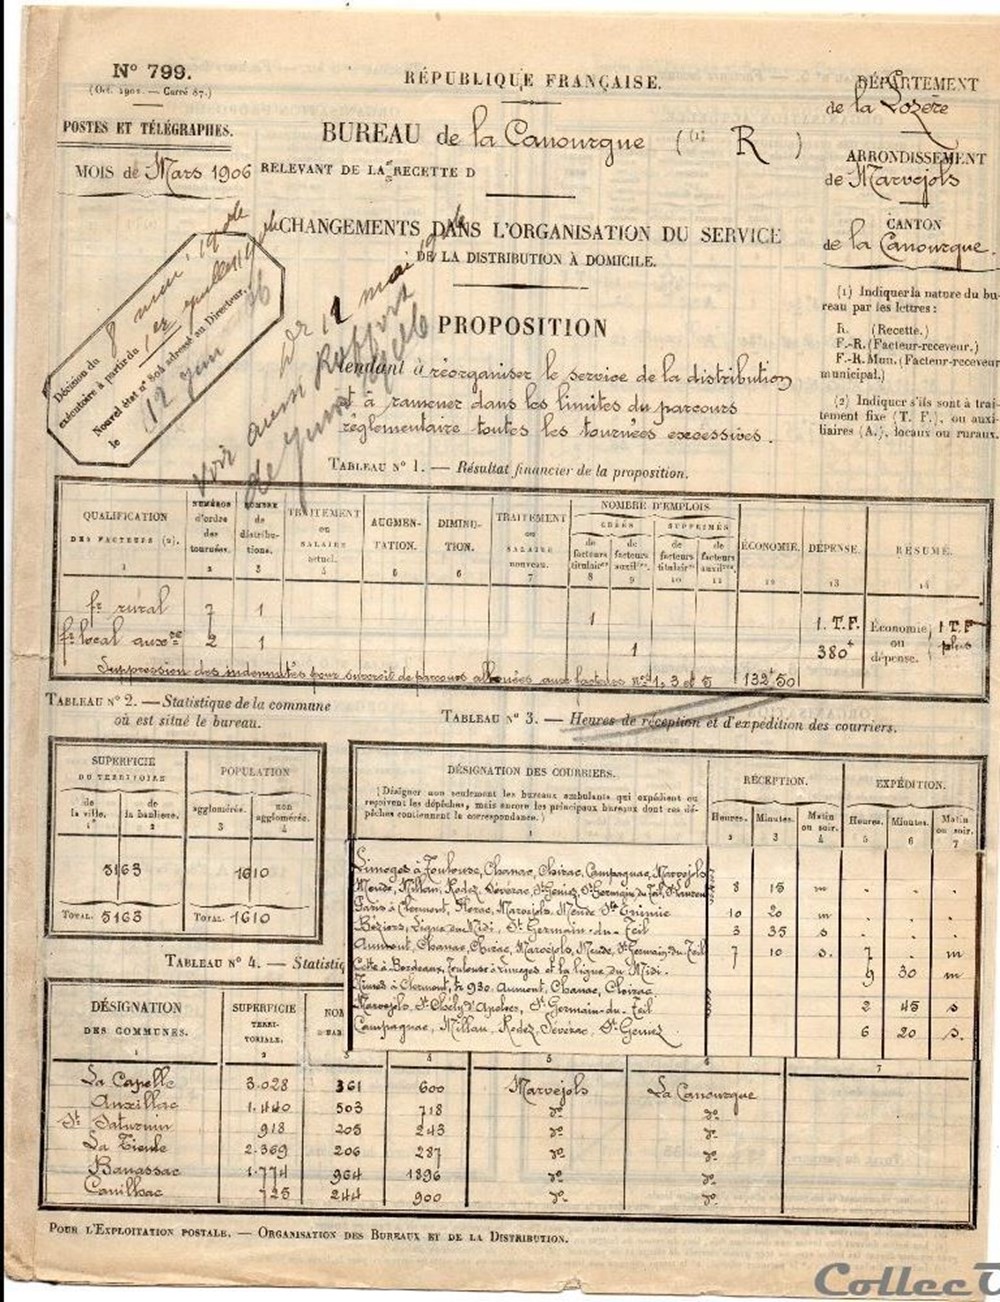 N° 799.
(Oct. 1901. — Carré 87.)
POSTES ET TÉLÉGRAPHES.
MOIS de Mars 1906
RÉPUBLIQUE FRANÇAISE.
BUREAU de la Canourgue ((1) R )
RELEVANT DE LA RECETTE D
DÉPARTEMENT
de la Lozère
ARRONDISSEMENT
de Marvejols
CANTON
de la Canourgue.
CHANGEMENTS DANS L'ORGANISATION DU SERVICE
DE LA DISTRIBUTION À DOMICILE.
Décision du 8 mai 19
exécutoire à partir du 1er juillet 19
Nouvel état n° 804 adressé au Directeur,
le 12 juin 06
voir
Rapport
de juin
(1) Indiquer la nature du bu-
reau par les lettres:
R. (Recette.)
F.-R. (Facteur-receveur.)
F.-R. Mun. (Facteur-receveur
municipal.)
(2) Indiquer s'ils sont à trai-
tement fixe (T. F.), ou auxi-
liaires (A.), locaux ou ruraux.
PROPOSITION
tendant à réorganiser le service de la distribution
et à ramener dans les limites du parcours
réglementaire toutes les tournées excessives.
TABLEAU N° 1. — Résultat financier de la proposition.
QUALIFICATION DES FACTEURS (2). NUMÉROS d'ordre des tournées. NOMBRE de distributions. TRAITEMENT ou SALAIRE actuel. AUGMEN-TATION. DIMINU-TION. TRAITEMENT ou SALAIRE nouveau. NOMBRE D'EMPLOIS ÉCONOMIE. DÉPENSE. RÉSUMÉ.
CRÉÉS SUPPRIMÉS
de facteurs titulaires de facteurs auxil res. de facteurs titulaires de facteurs auxil res.
1 2 3 4 5 6 7 8 9 10 11 12 13 14
fr rural 7 1 1 1. T.F. Économie ou dépense. 1 T.F plus
fr local auxre 2 1 1 380f
Suppression des indemnités pour surcroît de parcours allouées aux facteurs nos 1, 3 et 5 132f50
TABLEAU N° 2. — Statistique de la commune
où est situé le bureau.
SUPERFICIE DU TERRITOIRE POPULATION
de la ville. de la banlieue. agglomérée. non agglomérée.
1 2 3 4
5163 1610
TOTAL. 5163 TOTAL. 1610
TABLEAU N° 3. — Heures de réception et d'expédition des courriers.
DÉSIGNATION DES COURRIERS. RÉCEPTION. EXPÉDITION.
(Désigner non seulement les bureaux ambulants qui expédient ou
reçoivent les dépêches, mais encore les principaux bureaux dont ces dé-
pêches contiennent la correspondance.)
Heures. Minutes. Matin ou soir. Heures. Minutes. Matin ou soir.
1 2 3 4 5 6 7
Limoges à Toulouse, Chanac, Chirac, Campagnac, Marvejols
Mende, Millau, Rodez, Séverac, St Geniez, St Germain du Teil, St Laurent 8 15 m . . .
Paris à Clermont, Florac, Marvejols, Mende, Ste Enimie 10 20 m . . .
Béziers, Ligne du Midi, St Germain-du-Teil 3 35 s . . .
Aumont, Chanac, Chirac, Marvejols, Mende, St Germain-du-Teil 7 10 s. 7 . m
Cette à Bordeaux, Toulouse à Limoges et la ligne du Midi. 9 30 m
Nîmes à Clermont, te 930, Aumont, Chanac, Chirac,
Marvejols, St Chély d'Apcher, St Germain-du-Teil 2 45 s
Campagnac, Millau, Rodez, Séverac, St Geniez 6 20 s.
TABLEAU N° 4. — Statistiq
DÉSIGNATION DES COMMUNES. SUPERFICIE TERRI-TORIALE. NOM D'HAB
1 2 3 4 5 6 7
La Capelle 3.028 361 600 Marvejols La Canourgue
Auxillac 1.440 503 718 do do
St Saturnin 918 205 243 do do
La Tieule 2.369 206 287 do do
Banassac 1.774 964 1896 do do
Canilhac 725 244 900 do do
POUR L'EXPLOITATION POSTALE. — ORGANISATION DES BUREAUX ET DE LA DISTRIBUTION.
CollecT